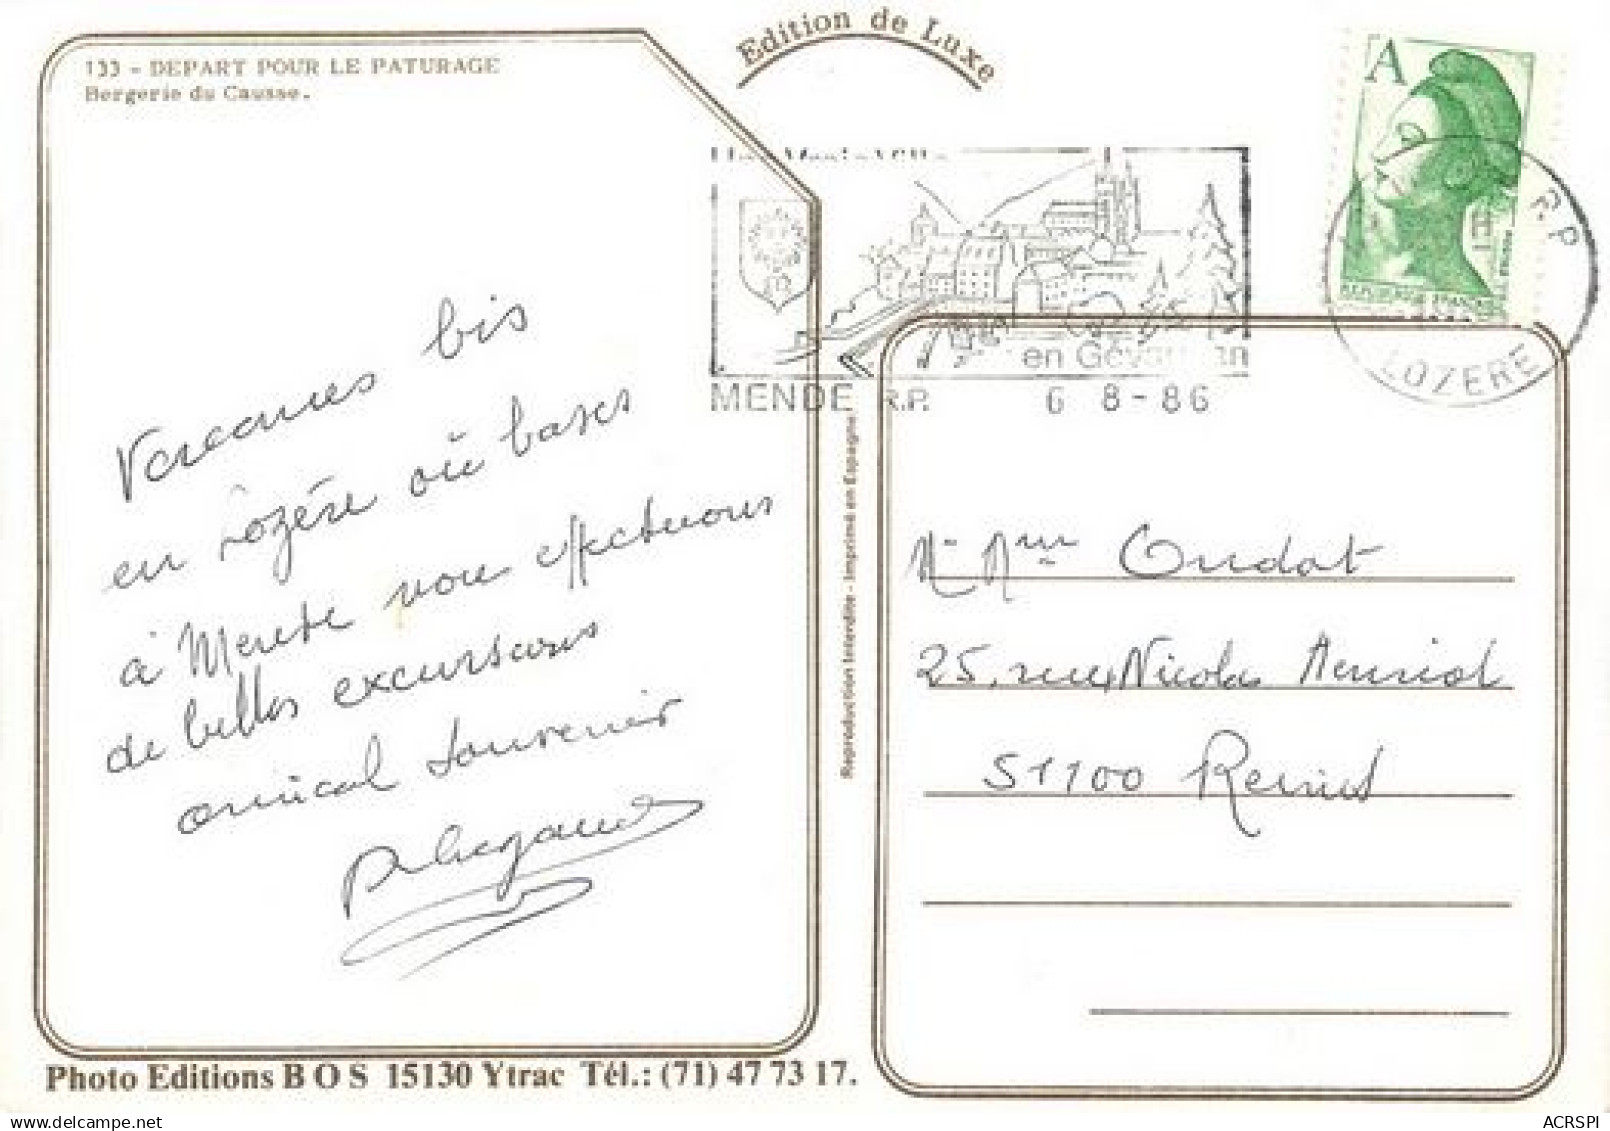 133 - DEPART POUR LE PATURAGE
Bergerie du Causse.
Edition de Luxe
A
REPUBLIQUE FRANCAISE
R.P
LOZERE
en Gévaudan
MENDE R.P. 6 8-86
Vacances bis
en Lozère où bases
à Mende nous effectuons
de belles excursions
amical souvenir
Reproduction Interdite - Imprimé en Espagne
M. Mme Oudot
25, rue Nicolas
51100 Reims
Photo Editions B O S 15130 Ytrac Tél.: (71) 47 73 17.
ACRSPI